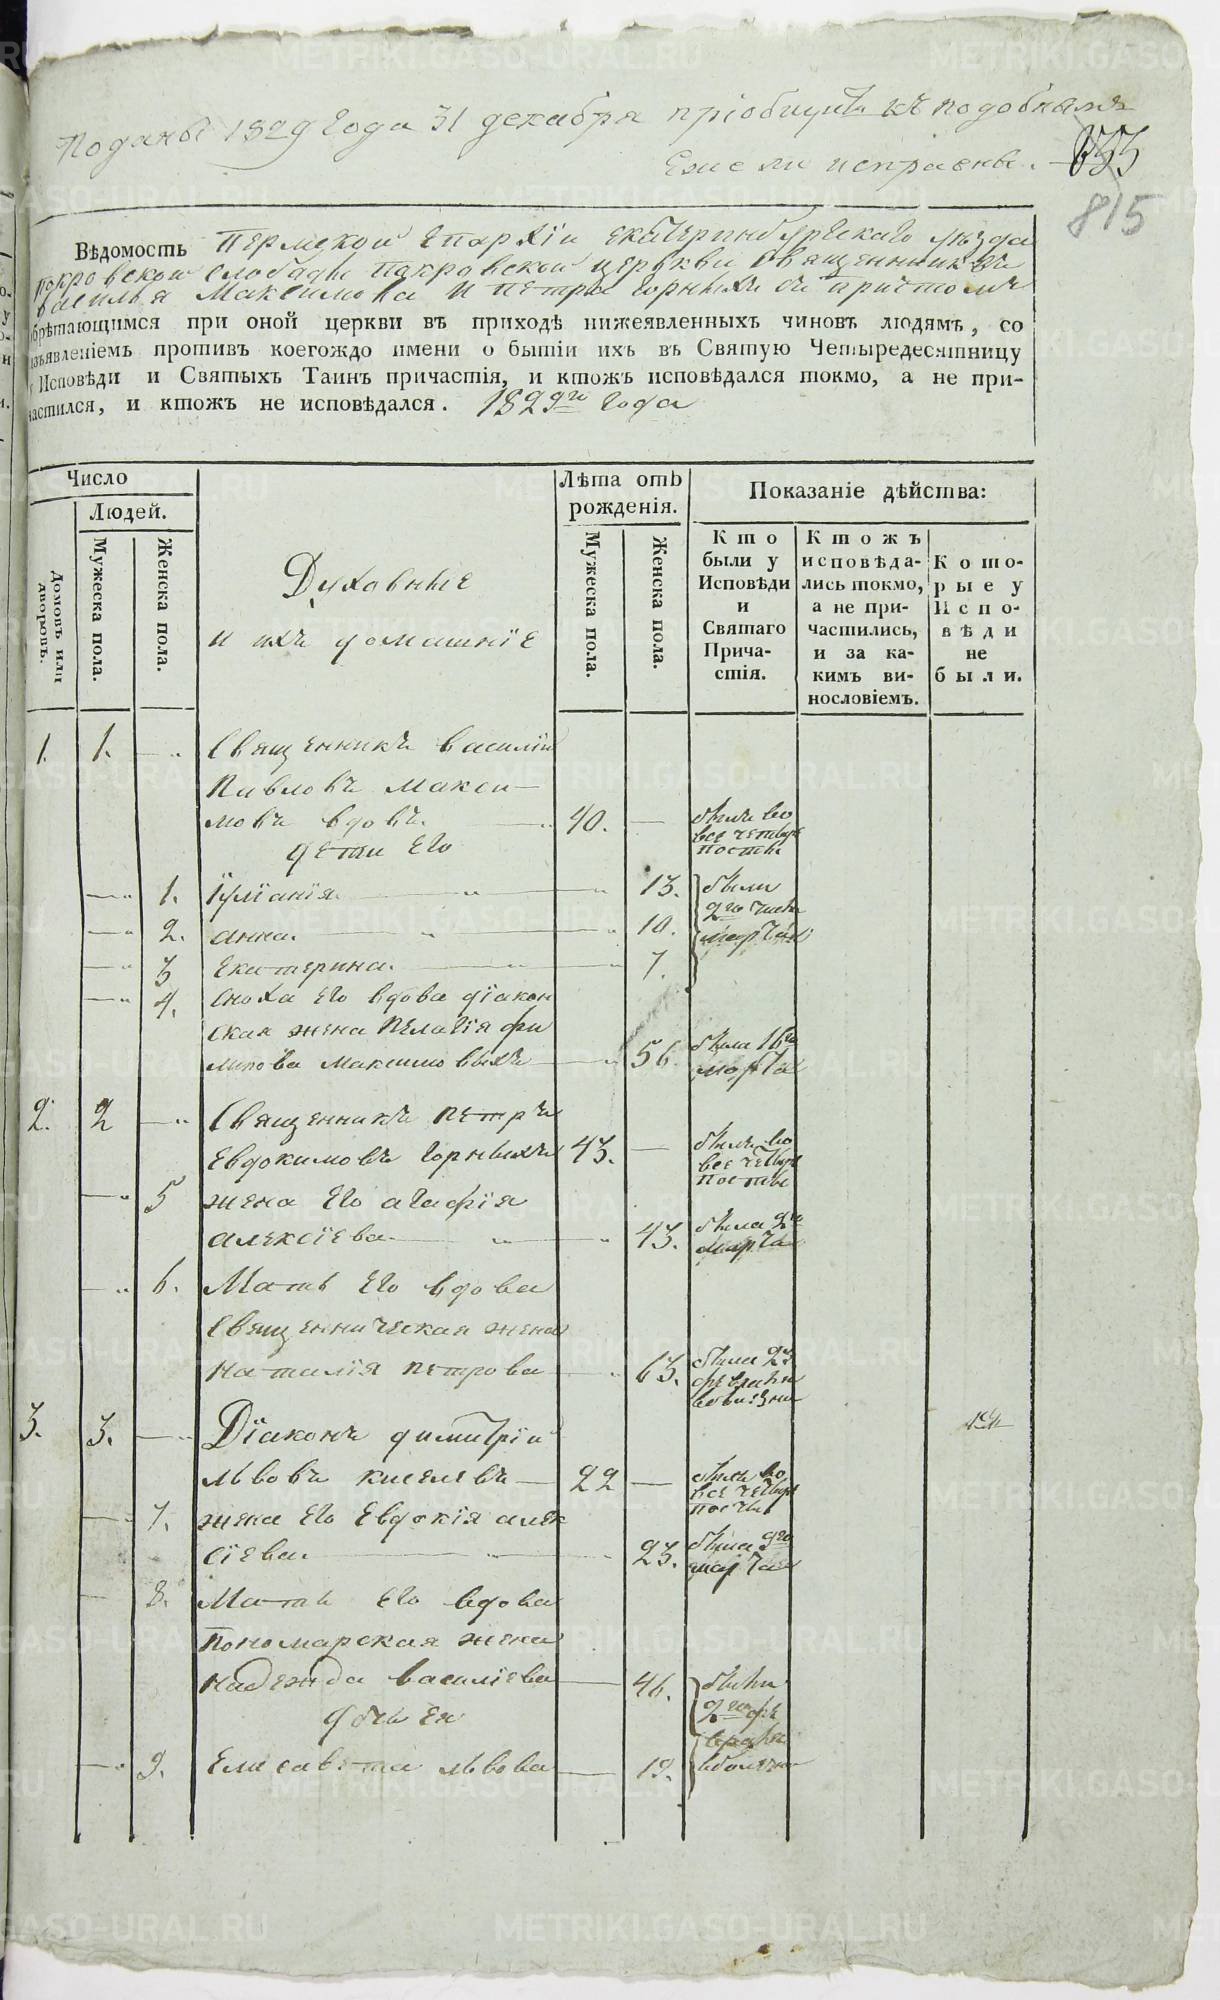 Поданы 1829 года 31 декабря пріобщить къ подобнымъ
Ежели исправны.
815
Вѣдомость Пермской Епархіи Екатеринбургскаго уѣзда
покровской слободы Покровской церкви священниковъ
василья Максимова и петра горныхъ съ притомъ
обрѣтающимся при оной церкви въ приходѣ нижеявленныхъ чиновъ людямъ, со
изъявленіемъ противъ коегождо имени о бытіи ихъ въ Святую Четыредесятницу
у Исповѣди и Святыхъ Таинъ причастія, и ктожъ исповѣдался токмо, а не при-
частился, и ктожъ не исповѣдался. 1829го года
Число
Людей.
Домовъ или дворовъ.
Мужеска пола.
Женска пола.
Духовные
и ихъ домашніе
Лѣта отъ
рожденія.
Мужеска пола.
Женска пола.
Показаніе дѣйства:
Кто
были у
Исповѣди
и
Святаго
Прича-
стія.
Ктожъ
исповѣда-
лись токмо,
а не при-
частились,
и за ка-
кимъ ви-
нословіемъ.
Кото-
рые у
Испо-
вѣди
не
были.
1. 1. Священникъ василій
Павловъ Макси-
мовъ вдовъ. 40. былъ во
все четыре
посты
дети его
1. Іуліанія 13. были
2го числа
2. анна. 10. марта
3 Екатерина. 7.
4. сноха его вдова діакон
ская жена Пелагія фи
липова максимовыхъ 56. была 16го
марта
2. 2 Священникъ петръ
Евдокимовъ горныхъ 43. былъ во
все четыре
посты
5 жена его агафія
алексіева 43. была 9го
марта
6. Мать его вдова
Священническая жена
наталія петрова 63. была 23
февраля
3. 3. Діаконъ димитрій
львовъ киселевъ 22 былъ во
все четыре
посты
7. жена его Евдокія алек
сіева. 23. была 9го
марта
8. Мать его вдова
Пономарская жена
надежда василіева 46. были
2го фе
враля
дочь ея
9. Елисавета львова 19.